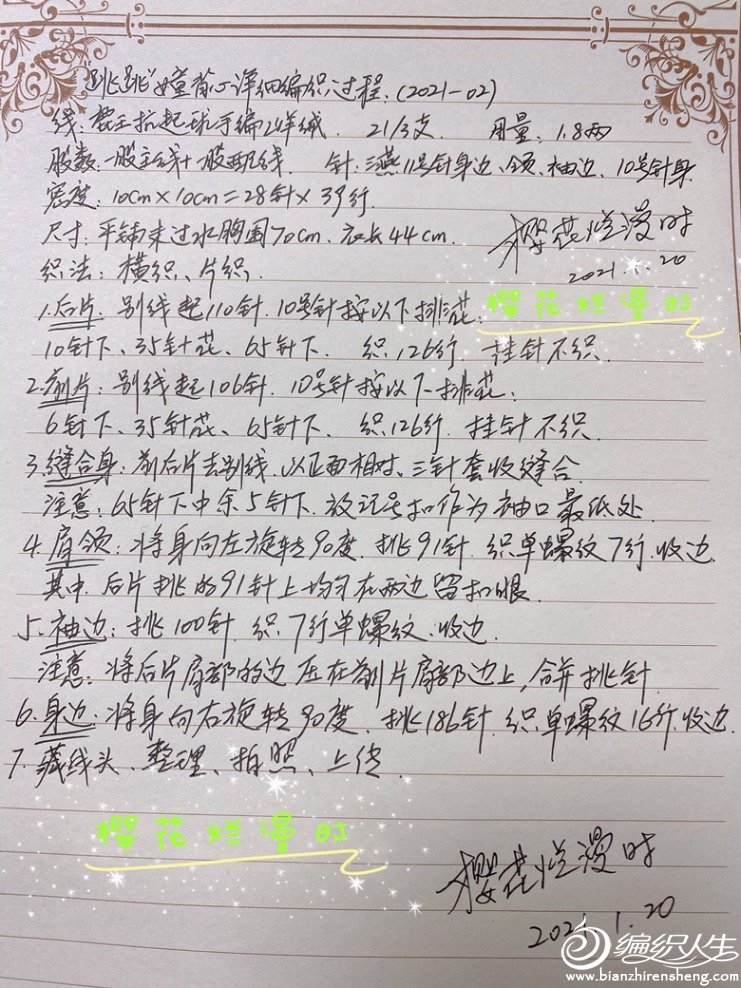 “跳跳”女童背心详细编织过程.(2021-02)
线: 鹿王抗起球手编山羊绒. 21/3支. 用量: 1.8两
股数: 一股主线+一股配线. 针: 三燕11号针身边、领、袖边、10号针身
密度: 10cm×10cm=28针×39行
尺寸: 平铺未过水胸围70cm. 衣长44cm.
樱花烂漫时
2021.1.20
织法: 横织、片织.
樱花烂漫时
1.后片: 别线起110针. 10号针按以下排花:
10针下、35针花、65针下. 织126行. 挂针不织.
2.前片: 别线起106针. 10号针按以下排花:
6针下、35针花、65针下. 织126行. 挂针不织.
3.缝合身: 前后片去别线. 以正面相对、三针套收缝合.
注意: 65针下中余5针下. 放记号扣作为袖口最低处.
4.肩领: 将身向左旋转90度. 挑91针. 织单螺纹7行.收边.
其中. 后片挑的91针上均匀在两边留扣眼.
5.袖边: 挑100针. 织7行单螺纹.收边.
注意: 将后片肩部的边压在前片肩部边上,合并挑针.
6.身边: 将身向右旋转90度. 挑186针. 织单螺纹16行.收边.
7.藏线头、整理、拍照、上传.
樱花烂漫时
樱花烂漫时
2021.1.20
编织人生
www.bianzhirensheng.com